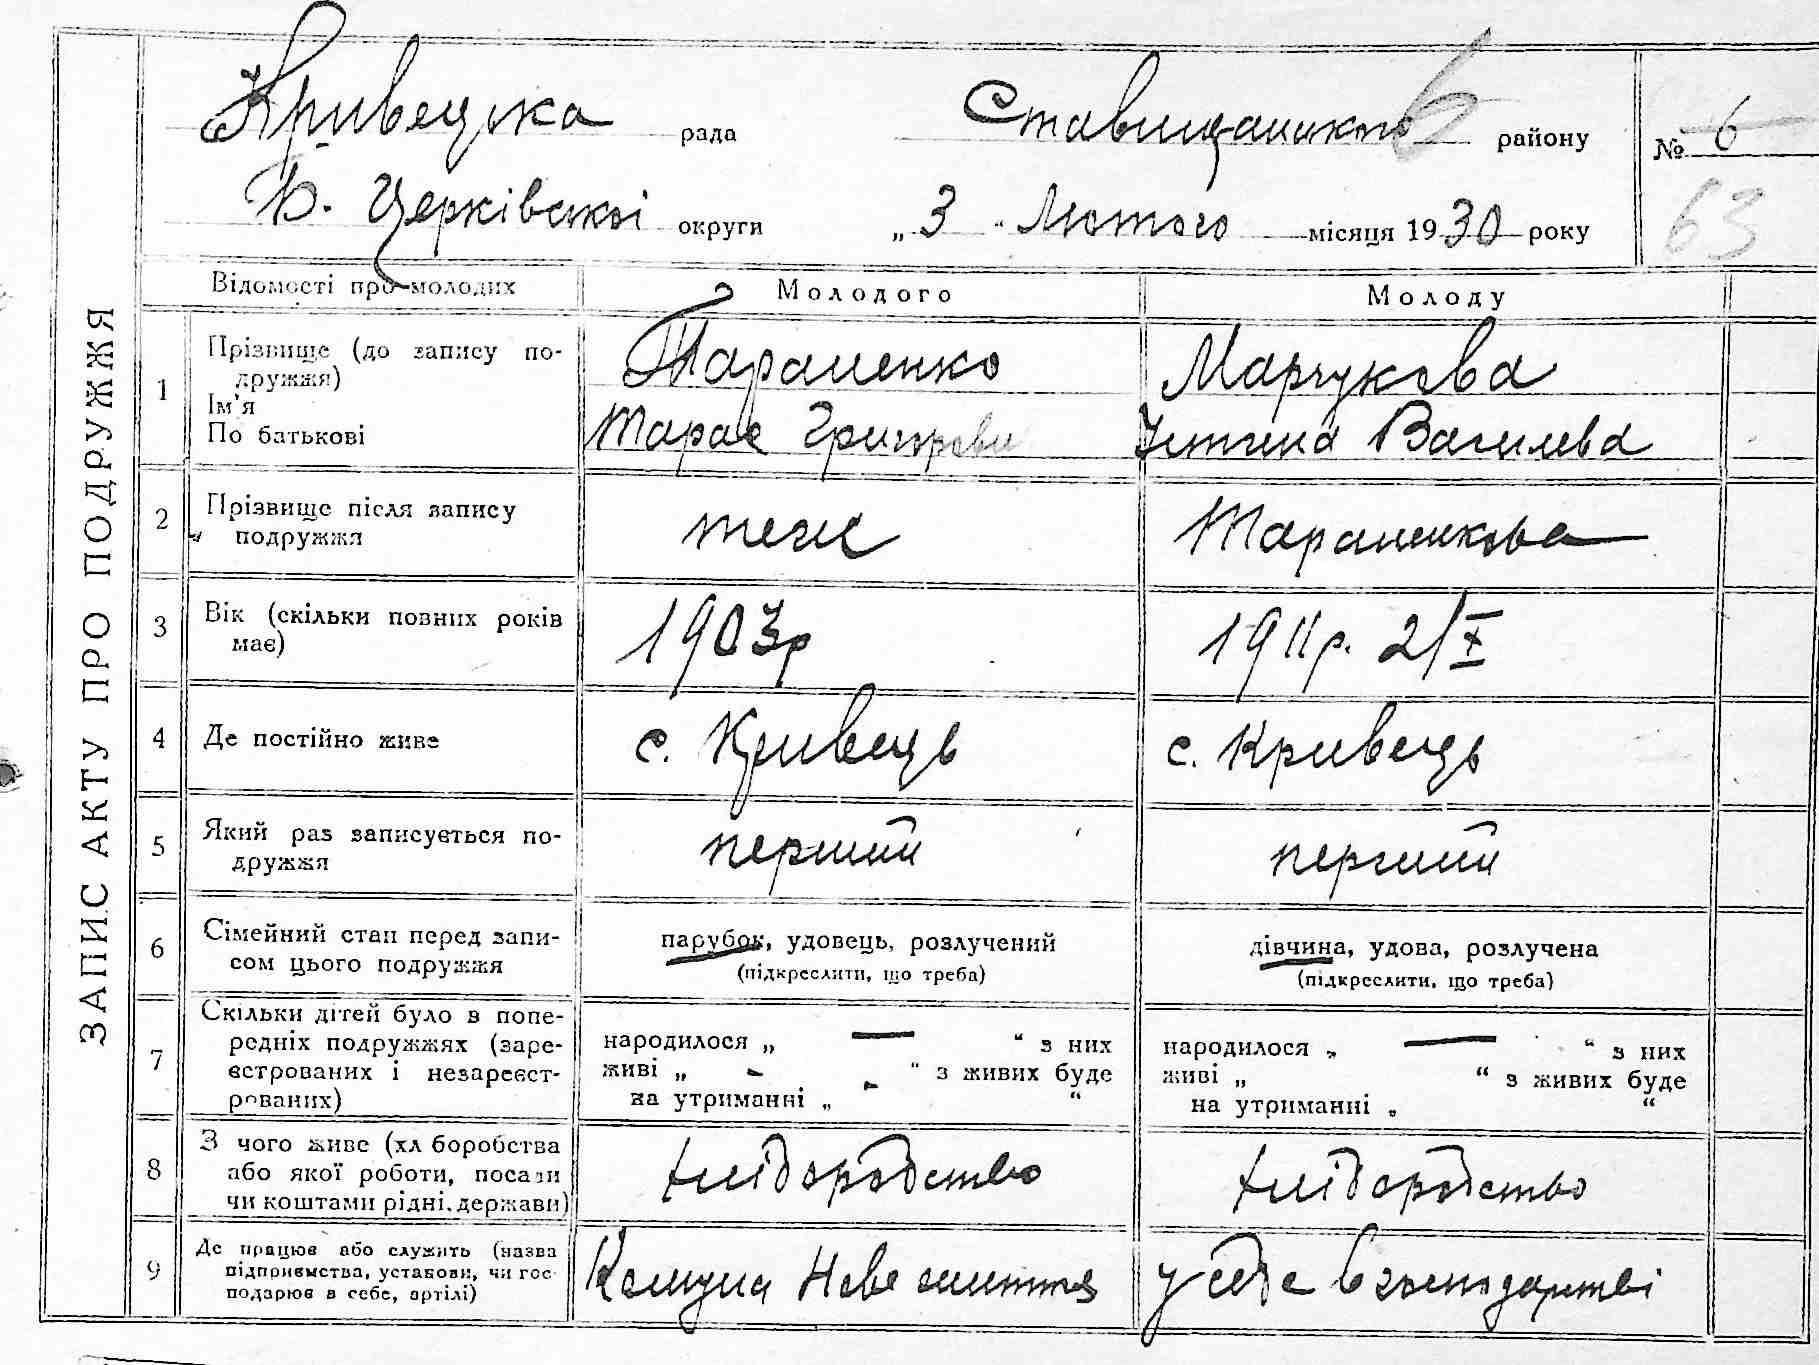 Кривецька рада Ставищанського району № 6
Б. Церківської округи „ 3 " Лютого місяця 1930 року 63
ЗАПИС АКТУ ПРО ПОДРУЖЖЯ
Відомості про молодих Молодого Молоду
1 Прізвище (до запису по-
дружжя)
Ім'я
По батькові
Тараненко
Тарас Григорови
Марчукова
Устина Василева
2 Прізвище після запису
подружжя
теж
Тараненкова
3 Вік (скільки повних років
має)
1903р
1911р. 2/X
4 Де постійно живе
с. Кривець
с. Кривець
5 Який раз записується по-
дружжя
перший
перший
6 Сімейний стан перед запи-
сом цього подружжя
парубок, удовець, розлучений
(підкреслити, що треба)
дівчина, удова, розлучена
(підкреслити, що треба)
7 Скільки дітей було в попе-
редніх подружжях (заре-
єстрованих і незареєст-
рованих)
народилося „ — " з них
живі „ - " з живих буде
на утриманні „ - "
народилося „ — " з них
живі „ " з живих буде
на утриманні „ "
8 З чого живе (хліборобства
або якої роботи, посади
чи коштами рідні, держави)
хліборобство
хліборобство
9 Де працює або служить (назва
підприємства, установи, чи гос-
подарює в себе, артілі)
Комуна Нове життя
у себе в господарстві